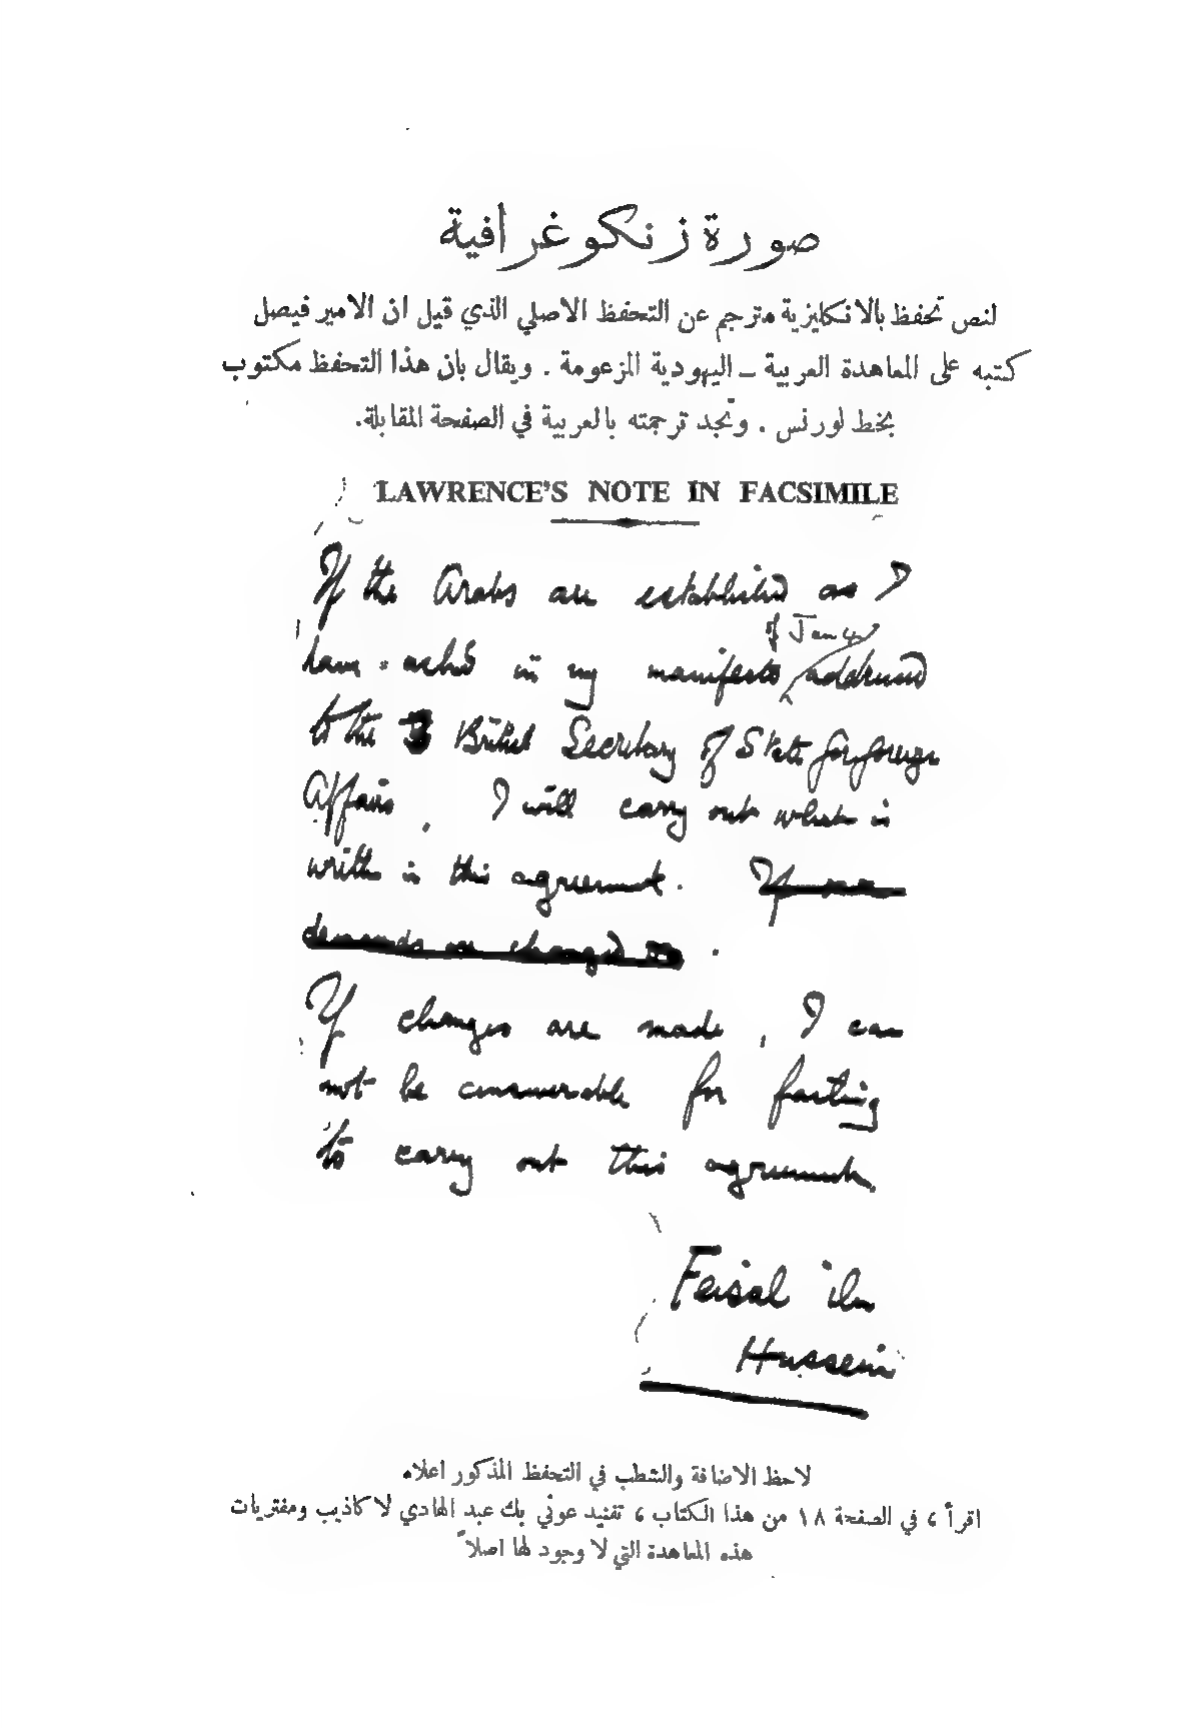 صورة زنكوغرافية
لنص تحفظ بالانكليزية مترجم عن التحفظ الاصلي الذي قيل ان الامير فيصل
كتبه على المعاهدة العربية – اليهودية المزعومة . ويقال بان هذا التحفظ مكتوب
بخط لورنس . وتجد ترجمته بالعربية في الصفحة المقابلة.
LAWRENCE'S NOTE IN FACSIMILE
If the Arabs are established as I
of Jan 4
have asked in my manifesto addressed
to the British Secretary of State for foreign
Affairs, I will carry out what is
written in this agreement. If
demands are changed .
If changes are made, I can
not be answerable for failing
to carry out this agreement.
Feisal ibn
Hussein
لاحظ الاضافة والشطب في التحفظ المذكور اعلاه
اقرأ ، في الصفحة ١٨ من هذا الكتاب ، تفنيد عوني بك عبد الهادي لاكاذيب ومفتريات
هذه المعاهدة التي لا وجود لها اصلاً